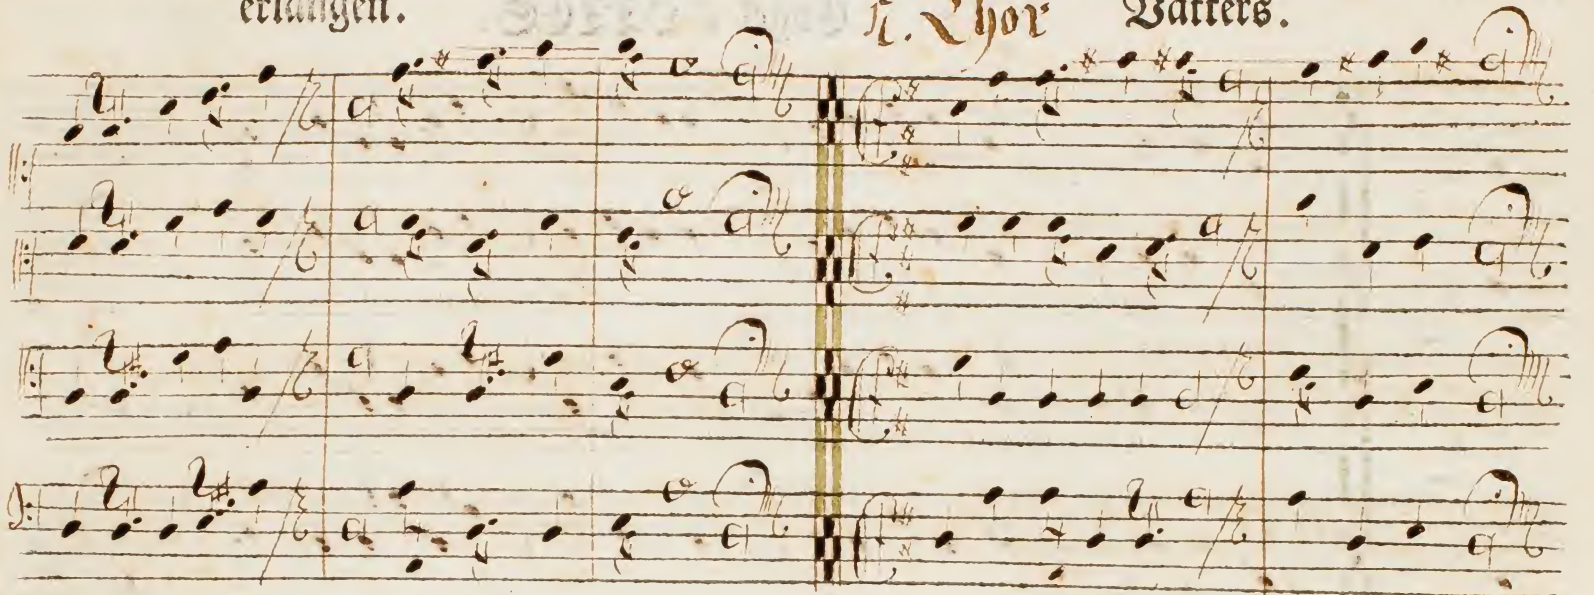 erlangen. A. Chor Vatters.